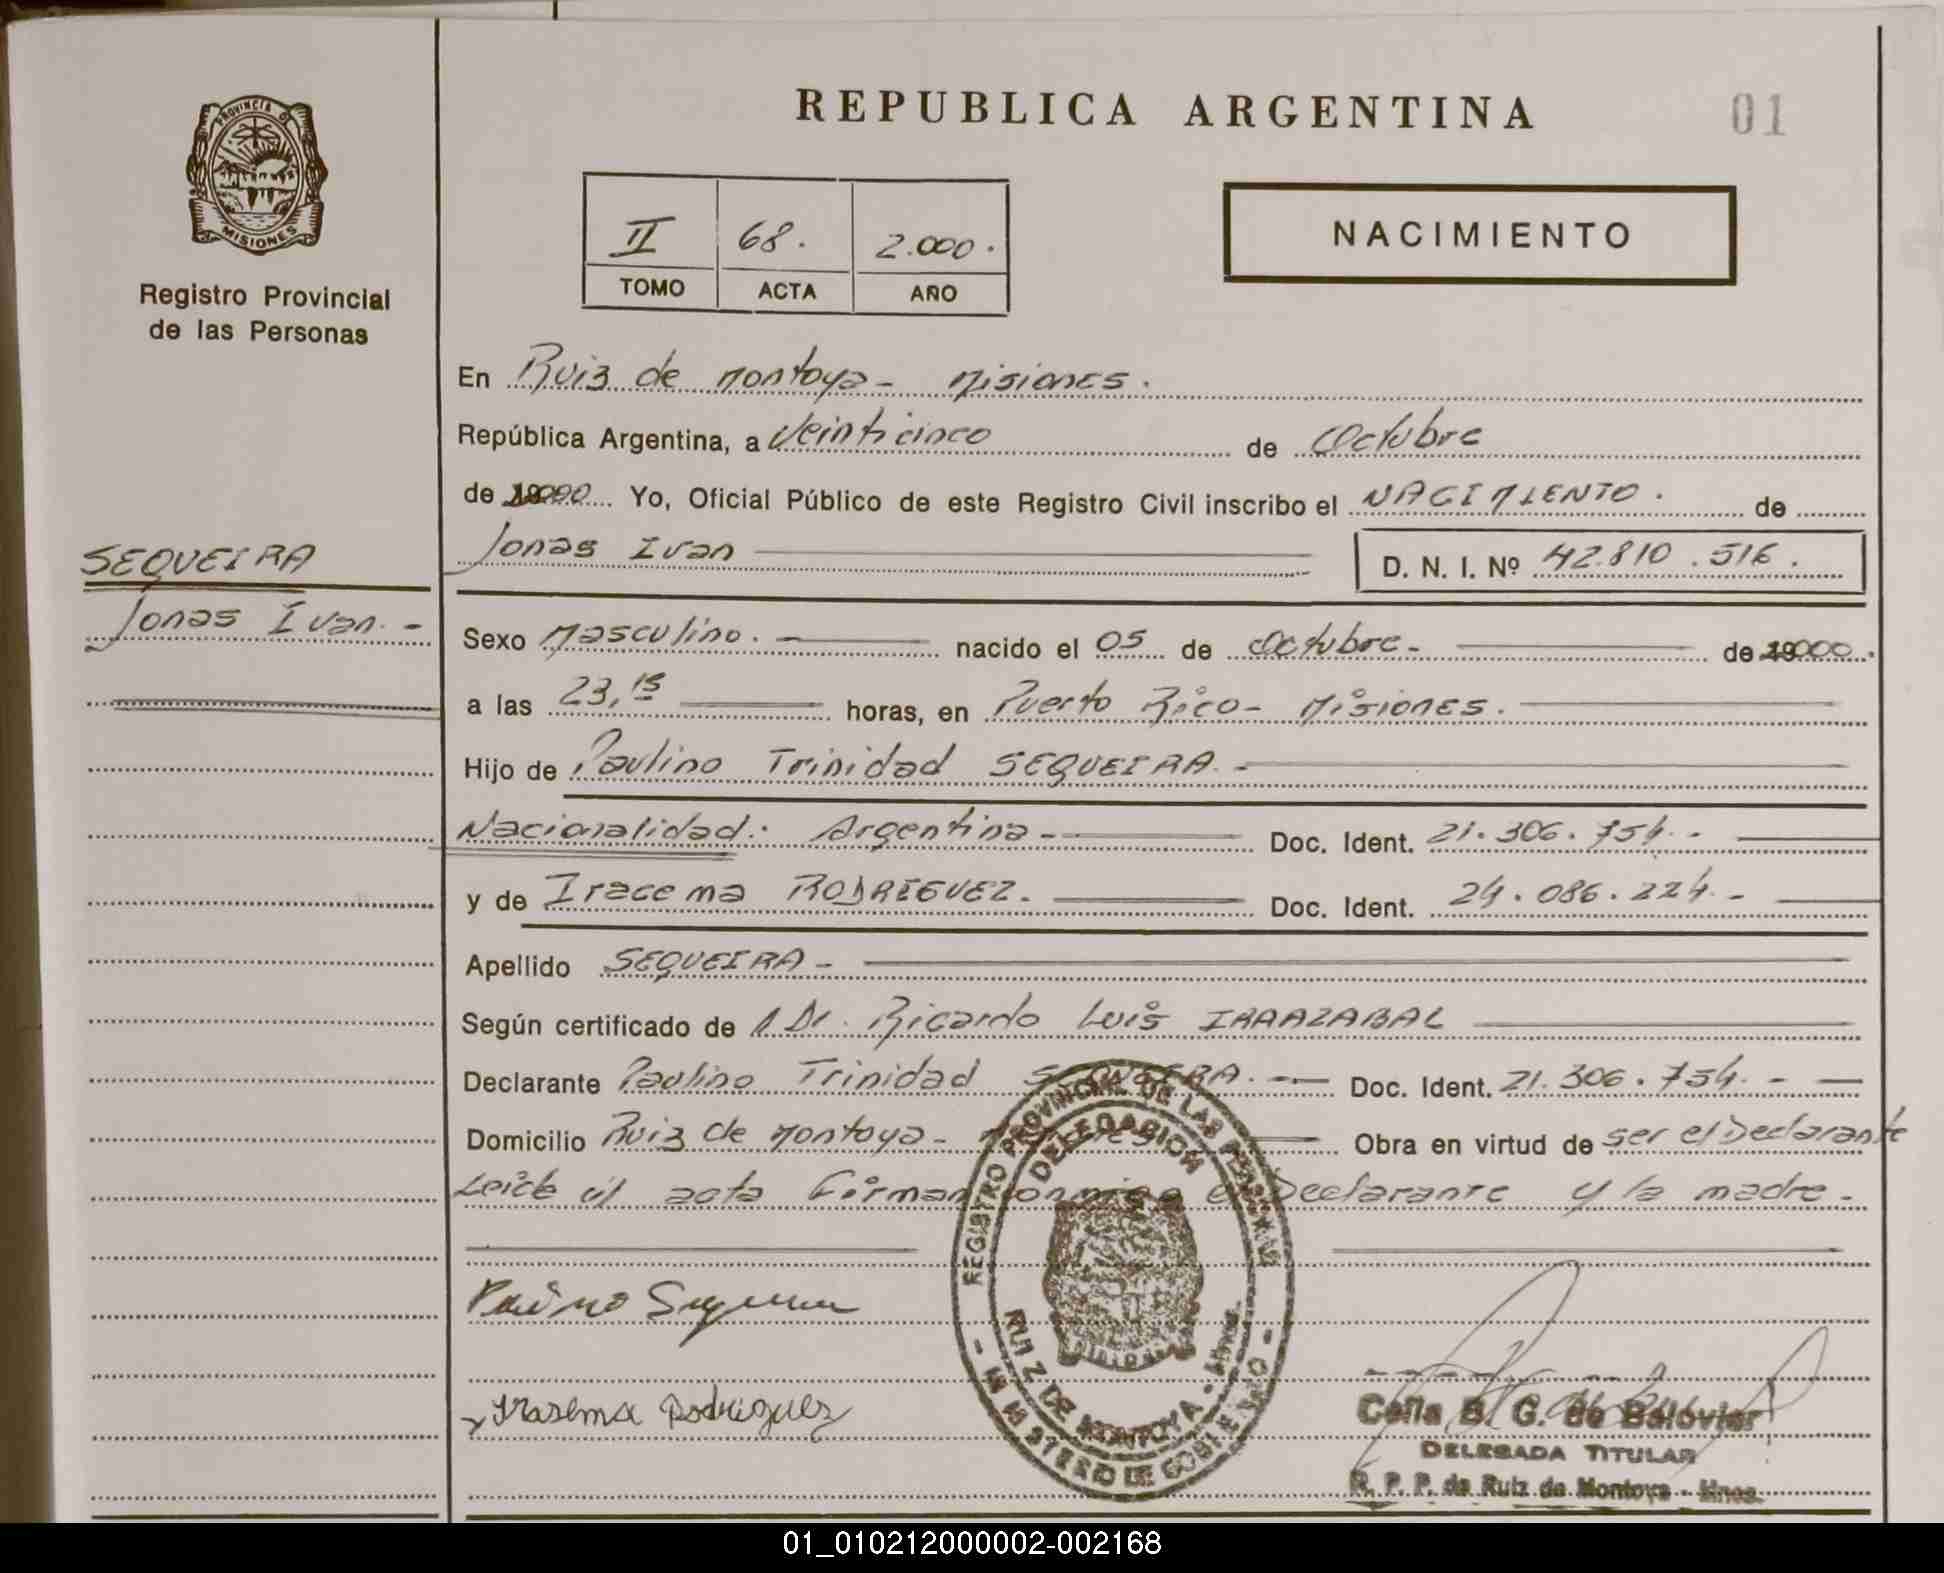 REPUBLICA ARGENTINA
01
PROVINCIA DE
MISIONES
Registro Provincial
de las Personas
II 68. 2.000.
TOMO ACTA AÑO
NACIMIENTO
En Ruiz de Montoya - Misiones.
República Argentina, a Veinticinco de Octubre
de 2000 Yo, Oficial Público de este Registro Civil inscribo el NACIMIENTO. de
Jonas Ivan D. N. I. Nº 42.810.516.
SEQUEIRA
Jonas Ivan. -
Sexo Masculino. - nacido el 05 de Octubre - de 2000.
a las 23,15 horas, en Puerto Rico - Misiones.
Hijo de Paulino Trinidad SEQUEIRA. -
Nacionalidad: Argentina - Doc. Ident. 21.306.754. -
y de Iracema RODRIGUEZ. - Doc. Ident. 24.086.224. -
Apellido SEQUEIRA -
Según certificado de Dr. Ricardo Luis IRRAZABAL
Declarante Paulino Trinidad SEQUEIRA. - Doc. Ident. 21.306.754. -
Domicilio Ruiz de Montoya - Misiones Obra en virtud de ser el Declarante
Leída el acta firman conmigo el Declarante y la madre. -
REGISTRO PROVINCIAL DE LAS PERSONAS
DELEGACION
RUIZ DE MONTOYA - Mnes.
- MINISTERIO DE GOBIERNO -
Paulino Sequeira
Irasema Rodriguez
Celia B. G. de Balovier
DELEGADA TITULAR
R. P. P. de Ruiz de Montoya - Mnes.
01_010212000002-002168